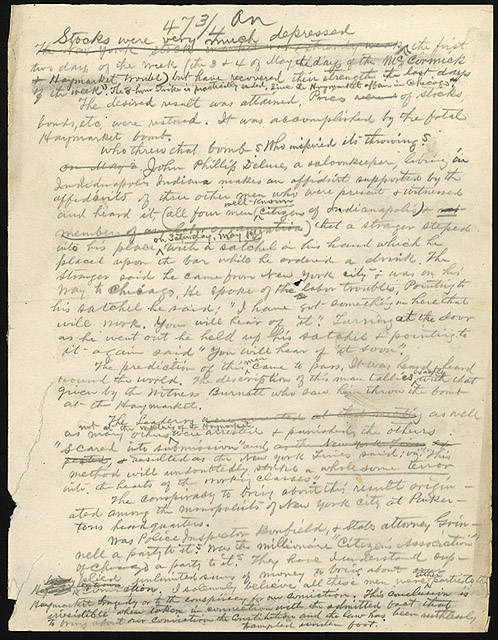 473 An
Stocks were very much depressed
the first
two days of the week (the 3 & 4 of May the days of the McCormick
& Haymarket trouble) but have recovered their strength the last days
of the week". The 8 hour strike is practically ended, since the Haymarket affair in Chicago,"
The desired result was attained. Prices of stocks
bonds, etc, were restored. It was accomplished by the fatal
Haymarket bomb.
Who threw that bomb? Who inspired its throwing?
John Phillip Deluse, a saloonkeeper, living in
Indianapolis Indiana makes an affidavit supported by the
affidavits of three other men who were present & witnessed
well-known
and heard it (all four men citizens of Indianapolis) &
members of
on Saturday, May 1st
that a stranger stepped
into his place with a satchel in his hand which he
placed upon the bar while he ordered a drink. The
stranger said he came from New York city & was on his
way to Chicago. He spoke of the labor troubles. Pointing to
his satchel he said: "I have got something in here that
will work. You will hear of it." Turning at the door
as he went out he held up his satchel & pointing to
it again said "You will hear of it soon".
The prediction of this man came to pass. It was heard
round the world. The description of this man tallies exactly with that
given by the Witness Burnett who saw him throw the bomb
at the Haymarket.
not at the meeting at Haymarket
as well
as many others were arrested & punished the others
scared into submission and
& resulted as the New York Times said: "This
method will undoubtedly strike a wholesome terror
into the hearts of the working classes".
The conspiracy to bring about this result origin-
ated among the monopolists of New York city at Pinker-
tons headquarters.
Was Police Inspector Bonfield, & States attorney Grin-
nell a party to it? Was the millionaire "Citizens Association"
of Chicago a party to it? They have
unlimited sums of money to bring about our
conviction. I solemnly believe all these men were parties to the
Haymarket tragedy or to the conspiracy for our conviction. This conclusion is
irresistible when taken in connection with the admitted fact that
to bring about our conviction the Constitution and the law has been ruthlessly
trampled under foot.